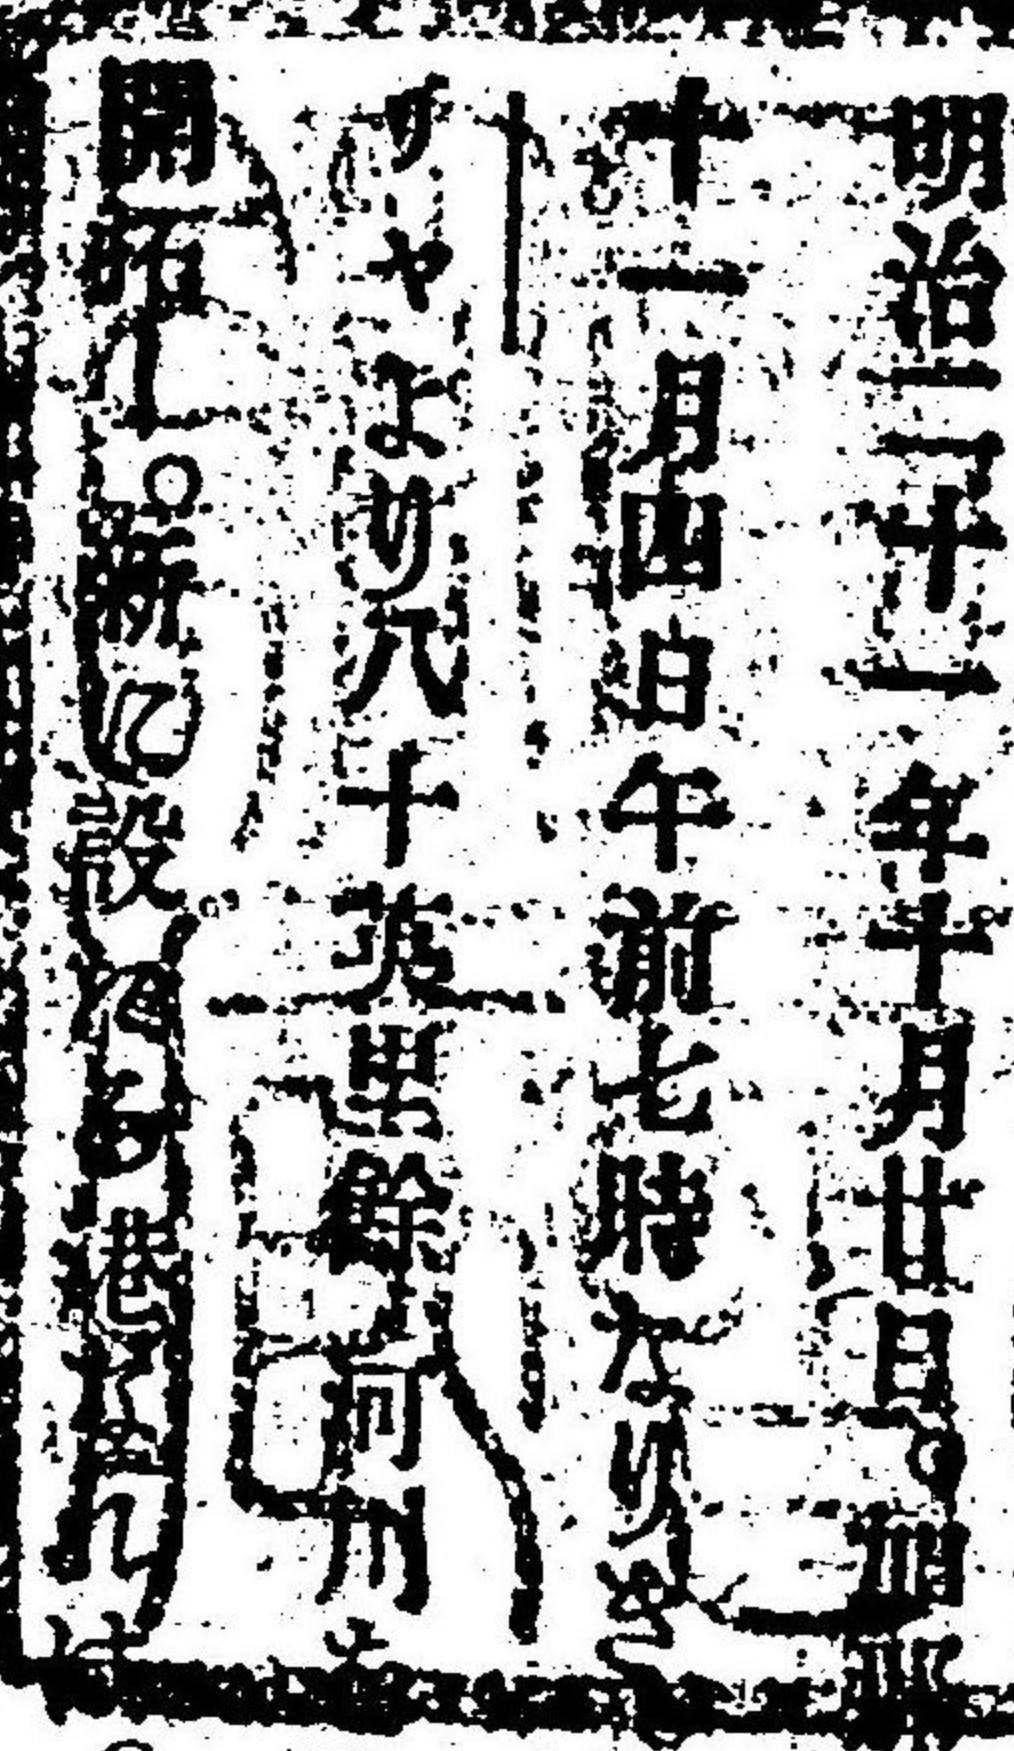 明治二十一年十月廿日。加
十一月四日午前七時なりき
ヂヤより八十英里餘河州
開拓し。新に設けたる港なれ